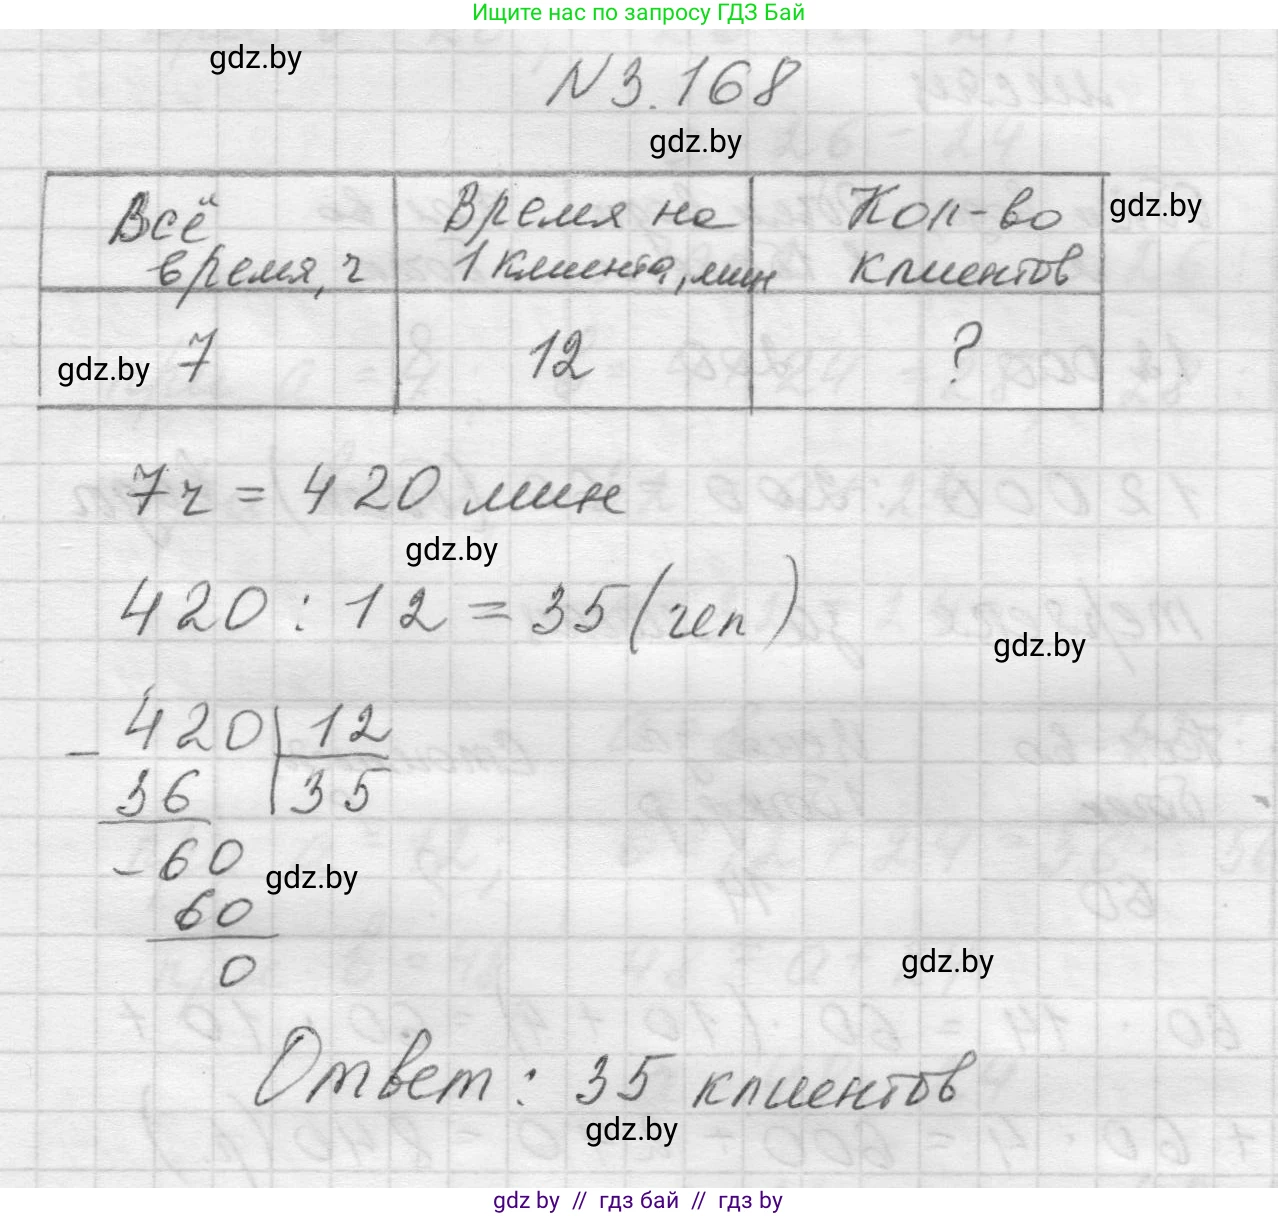 Ищите нас по запросу ГДЗ Бай
gdz.by
N3.168
gdz.by
Всё время, ч
Время на 1 клиента, мин
Кол-во клиентов
gdz.by
gdz.by
7
12
?
7ч = 420 мин
gdz.by
420 : 12 = 35 (чел)
gdz.by
- 420 | 12
36 | 35
- 60
gdz.by
60
0
gdz.by
Ответ: 35 клиентов
gdz.by
gdz by // гдз бай // гдз by